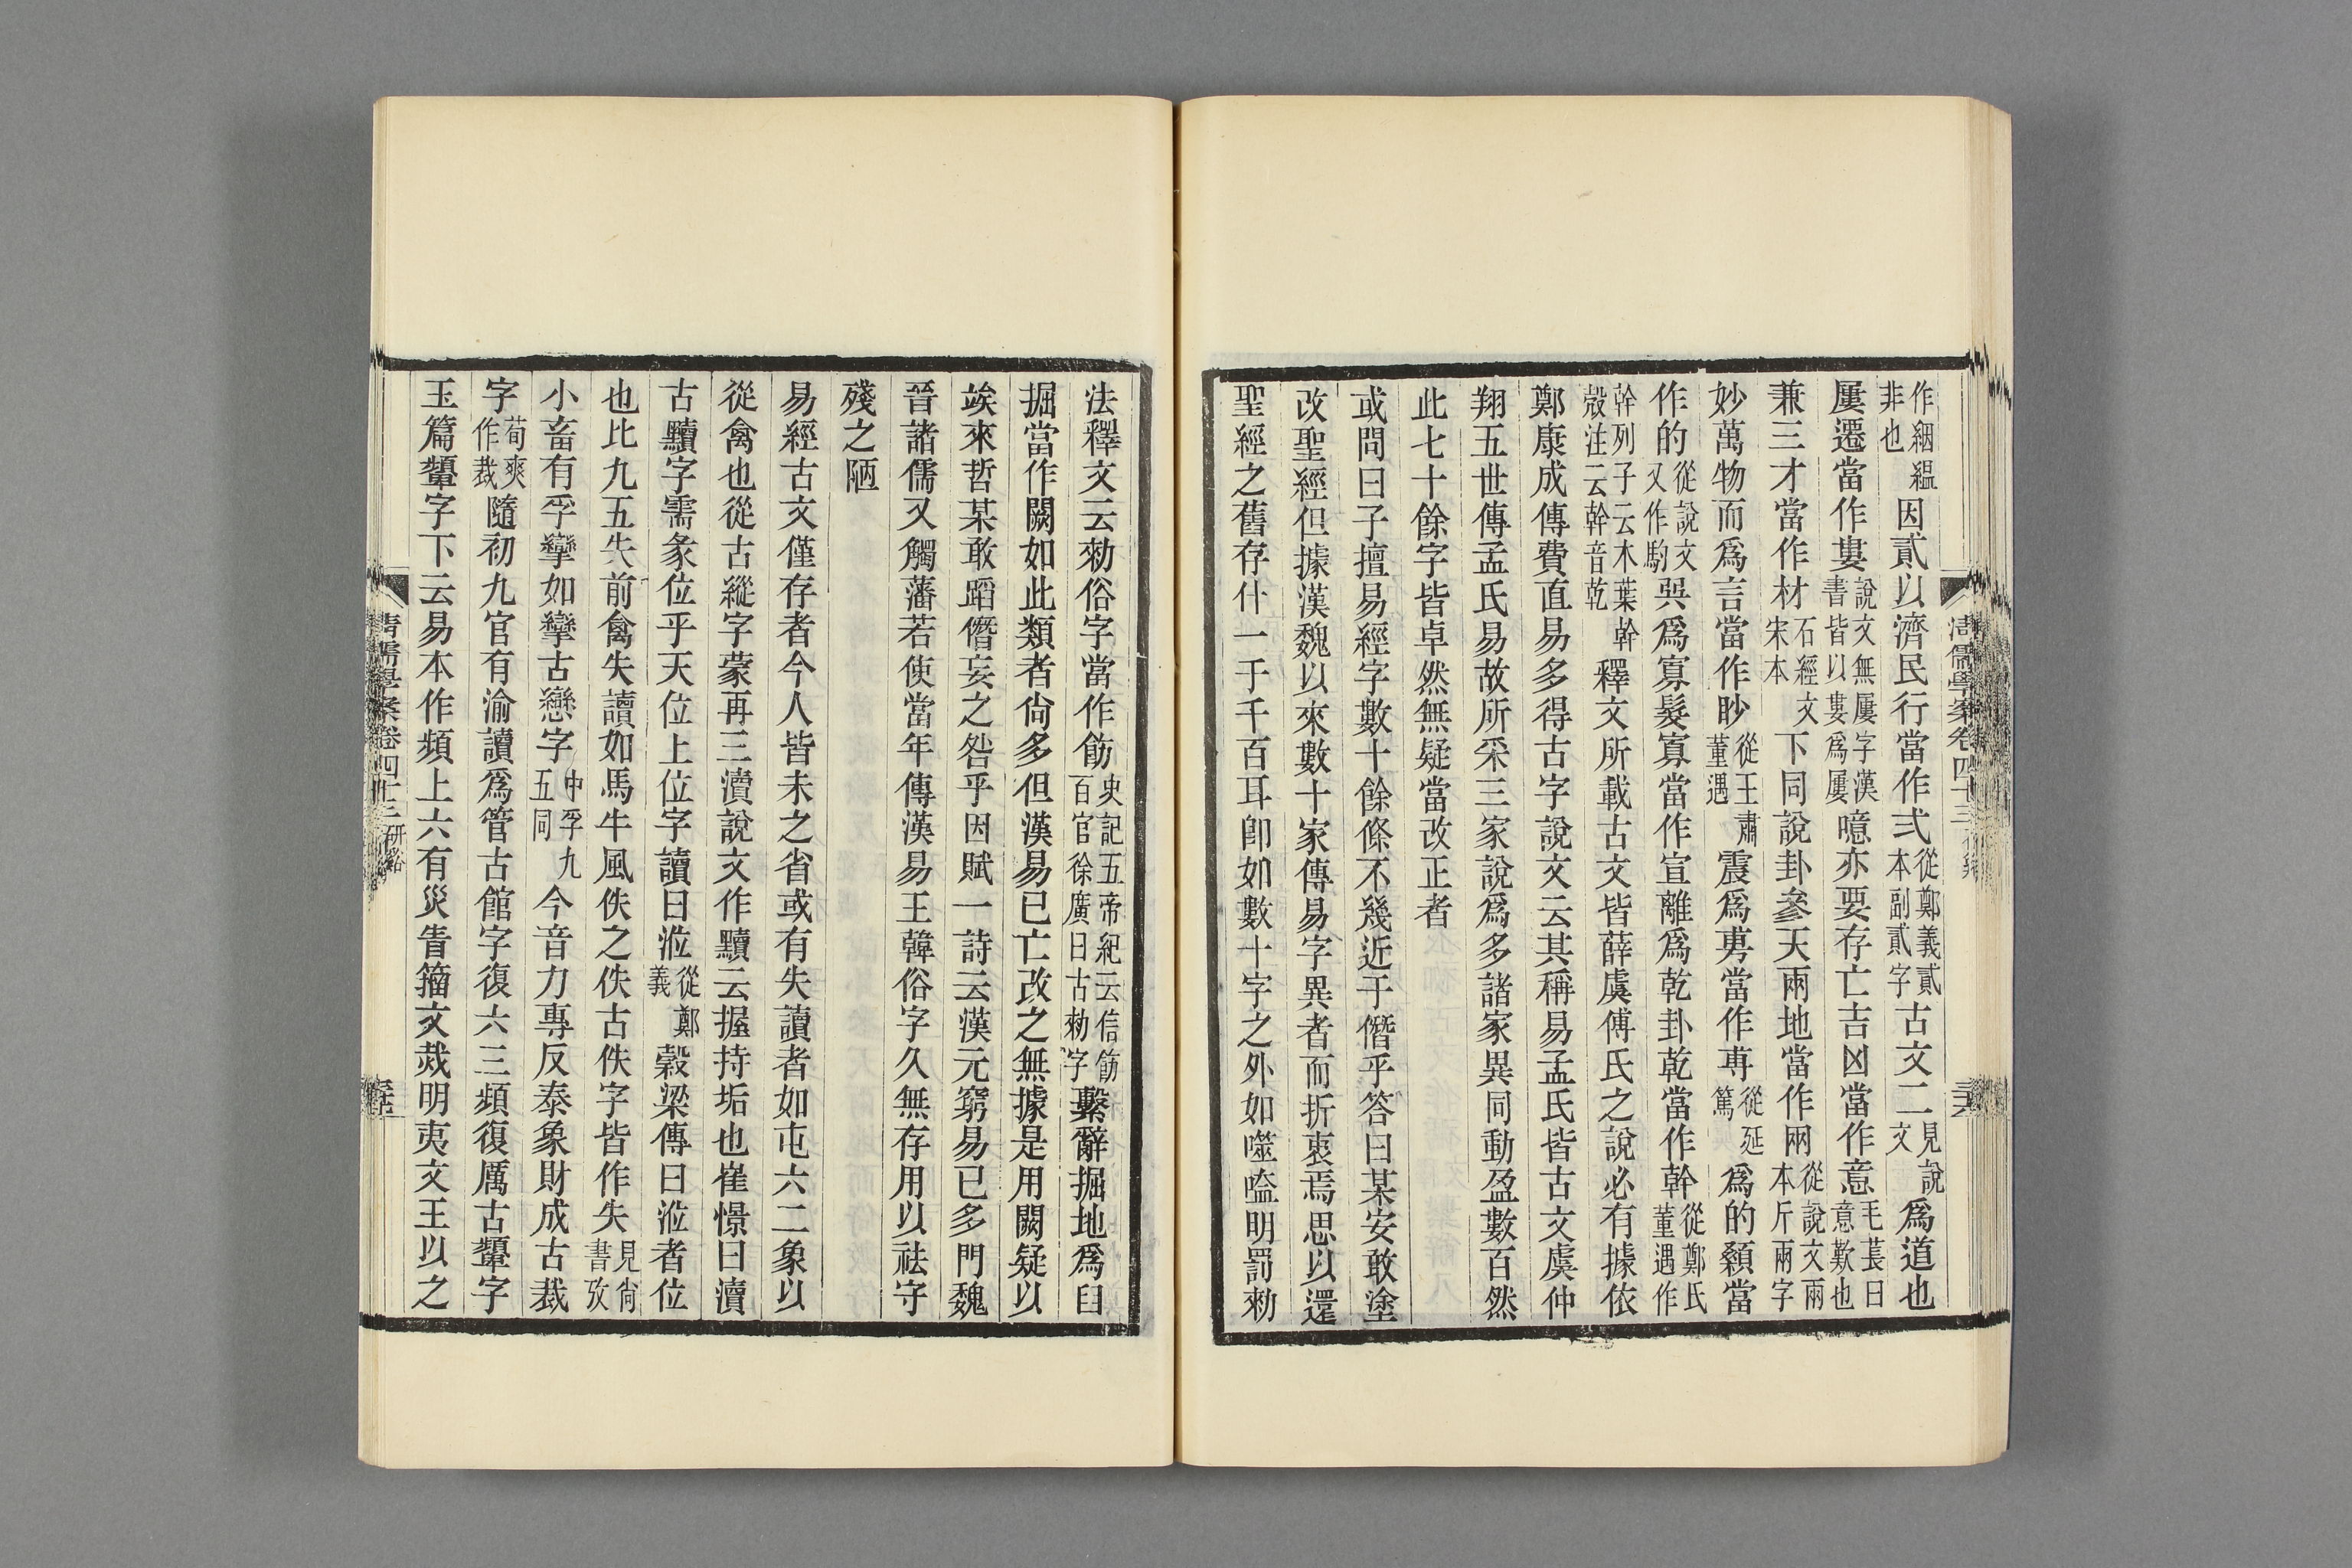 作絪縕非也因貳以濟民行當作弍從鄭義貳本副貳字古文二見說文爲道也
屢遷當作婁說文無屢字漢書皆以婁爲屢噫亦要存亡吉凶當作意毛萇曰意歎也
兼三才當作材石經文宋本下同說卦參天兩地當作㒳從說文兩本斤兩字
妙萬物而爲言當作眇從王肅董遇震爲旉當作専從延篤爲的顙當
作的從說文又作馰巽爲寡髮寡當作宣離爲乾卦乾當作幹從鄭氏董遇作
幹列子云木葉幹殼注云幹音乾釋文所載古文皆薛虞傅氏之說必有據依
鄭康成傳費直易多得古字說文云其稱易孟氏皆古文虞仲
翔五世傳孟氏易故所采三家說爲多諸家異同動盈數百然
此七十餘字皆卓然無疑當改正者
或問曰子擅易經字數十餘條不幾近于僭乎答曰某安敢塗
改聖經但據漢魏以來數十家傳易字異者而折衷焉思以還
聖經之舊存什一于千百耳卽如數十字之外如噬嗑明罰勑
清儒學案卷四十三
法釋文云勑俗字當作飭史記五帝紀云信飭百官徐廣曰古勑字繫辭掘地爲臼
掘當作闕如此類者尙多但漢易已亡改之無據是用闕疑以
竢來哲某敢蹈僭妄之咎乎因賦一詩云漢元窮易已多門魏
晉諸儒又觸藩若使當年傳漢易王韓俗字久無存用以祛守
殘之陋
易經古文僅存者今人皆未之省或有失讀者如屯六二象以
從禽也從古縱字蒙再三瀆說文作黷云握持垢也崔憬曰瀆
古黷字需彖位乎天位上位字讀曰涖從鄭義穀梁傳曰涖者位
也比九五失前禽失讀如馬牛風佚之佚古佚字皆作失見尙書攷
小畜有孚攣如攣古戀字中孚九五同今音力專反泰象財成古裁
字荀爽作裁隨初九官有渝讀爲管古館字復六三頻復厲古顰字
玉篇顰字下云易本作頻上六有災眚籀文烖明夷文王以之
清儒學案卷四十三 研谿